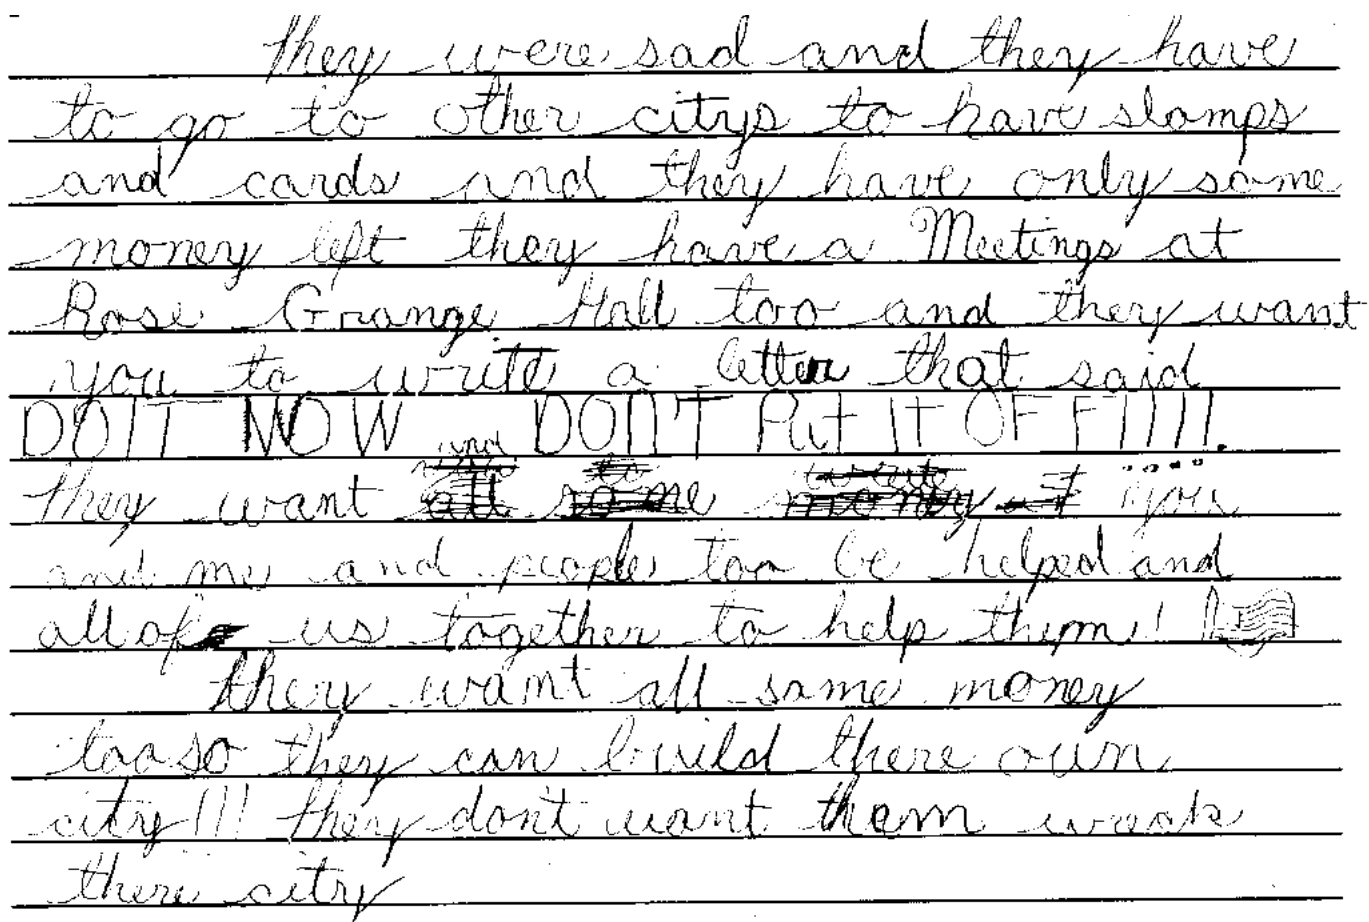 they were sad and they have
to go to other citys to have stamps
and cards and they have only some
money left they have a Meetings at
Rose Grange Hall too and they want
you to write a letter that said
DO IT NOW DON'T Put IT OFF!!!!.
they want you
and me and people too be helped and
all of us together to help them!
they want all some money
too so they can build there own
city!!! they dont want them wreak
there city